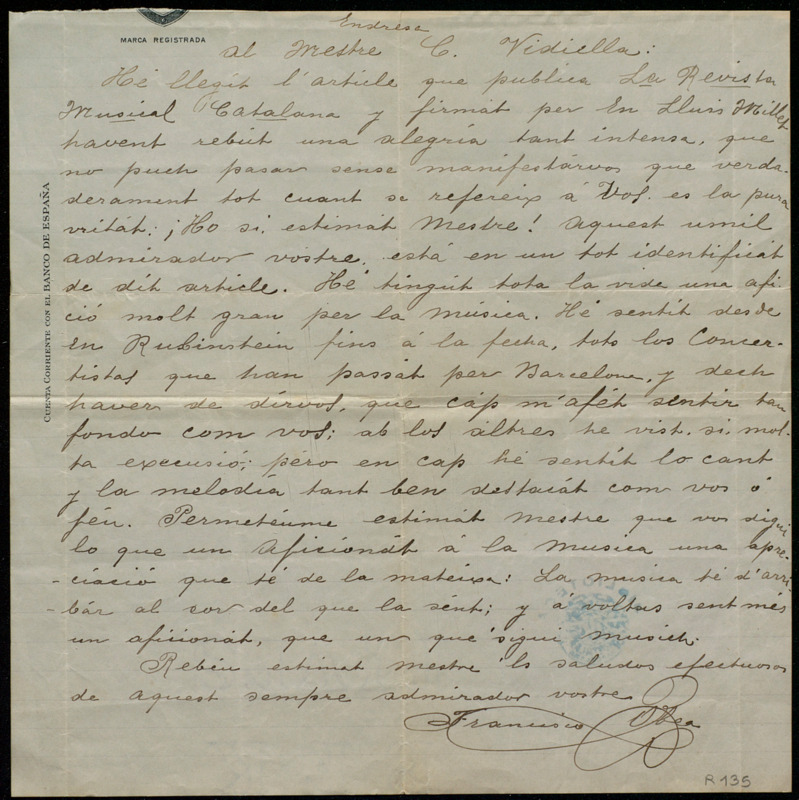 MARCA REGISTRADA
CUENTA CORRIENTE CON EL BANCO DE ESPAÑA
Endresa
al Mestre C. Vidiella:
Hé llegit l'article que publica La Revista
Musical Catalana y firmat per En Lluis Millet
havent rebút una alegría tant intensa, que
no puch pasar sense manifestárvos que verda-
derament tot cuant se refereix á Vos. es la pura
vritát: ¡Ho si, estimát Mestre! aquest umil
admirador vostre, está en un tot identificát
de dit article. Hé tingút tota la vide una afi
ció molt gran per la música. Hé sentit desde
En Rubinstein fins á la fecha, tots los Concer-
tistas que han passát per Barcelona, y dech
haver de dirvos, que cáp m'afét sentir tan
fondo com vos; ab los áltres he vist, si, mol-
ta execusió; péro en cap hé sentit lo cant
y la melodía tant ben destaiát com vos ó
féu. Permetéume estimát mestre que vos digui
lo que un aficionát á la musica una apre-
-ciació que té de la matéixa: La musica té d'arri
-bár al cor del que la sént; y á voltas sent més
un aficionát, que un que sigui musich.
Rebéu estimat mestre 'ls saludos efectuosos
de aquest sempre admirador vostre
Francisco
R 135